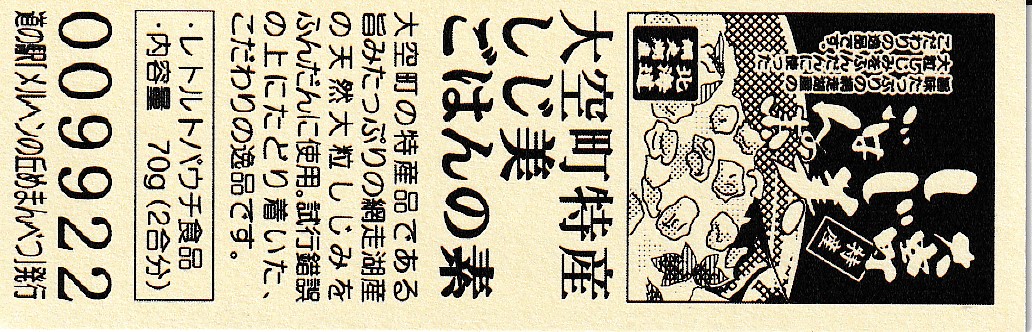 しじ美
ごはん
の素
特産
旨味たっぷりの網走湖産の
大粒しじみをふんだんに使った
こだわりの逸品です。
北海道
大空町特産
しじ美
ごはんの素
大空町の特産品である
旨みたっぷりの網走湖産
の天然大粒しじみを
ふんだんに使用。試行錯誤
の上にたどり着いた、
こだわりの逸品です。
・レトルトパウチ食品
・内容量　70g(2合分)
009922
道の駅「メルヘンの丘めまんべつ」発行